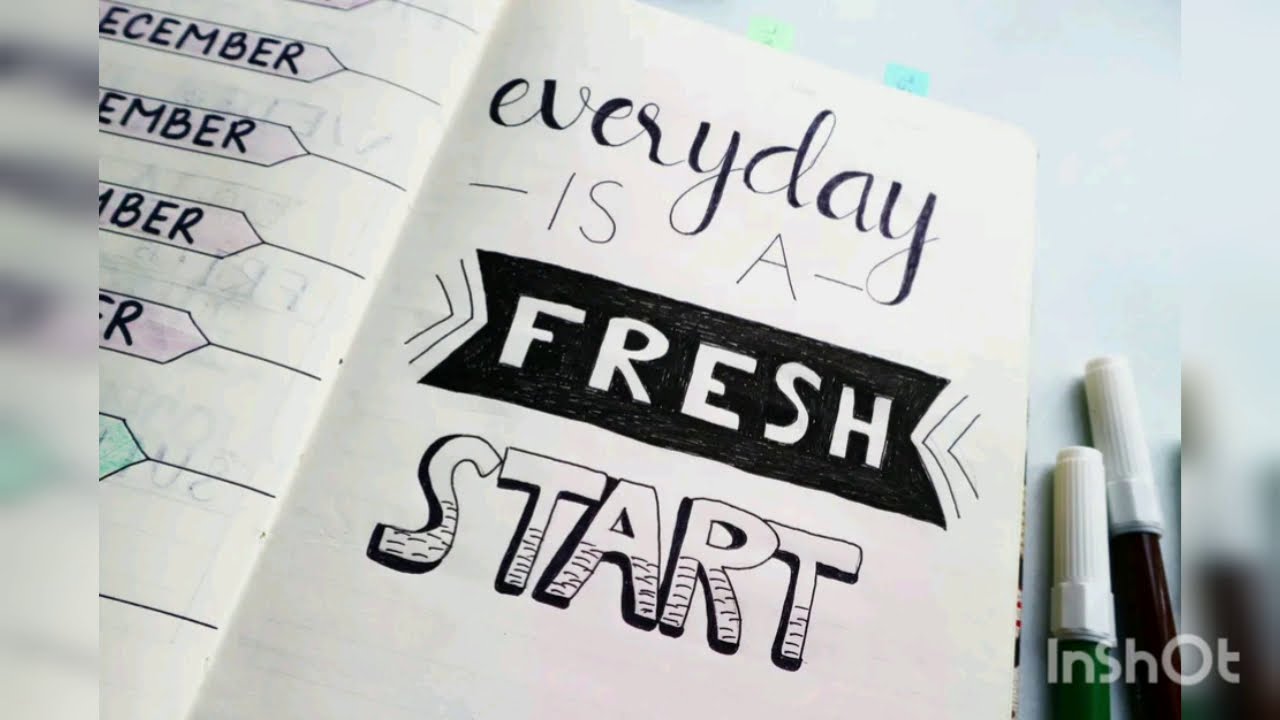 ECEMBER
EMBER
MBER
ER
everyday
IS A
FRESH
START
InShOt